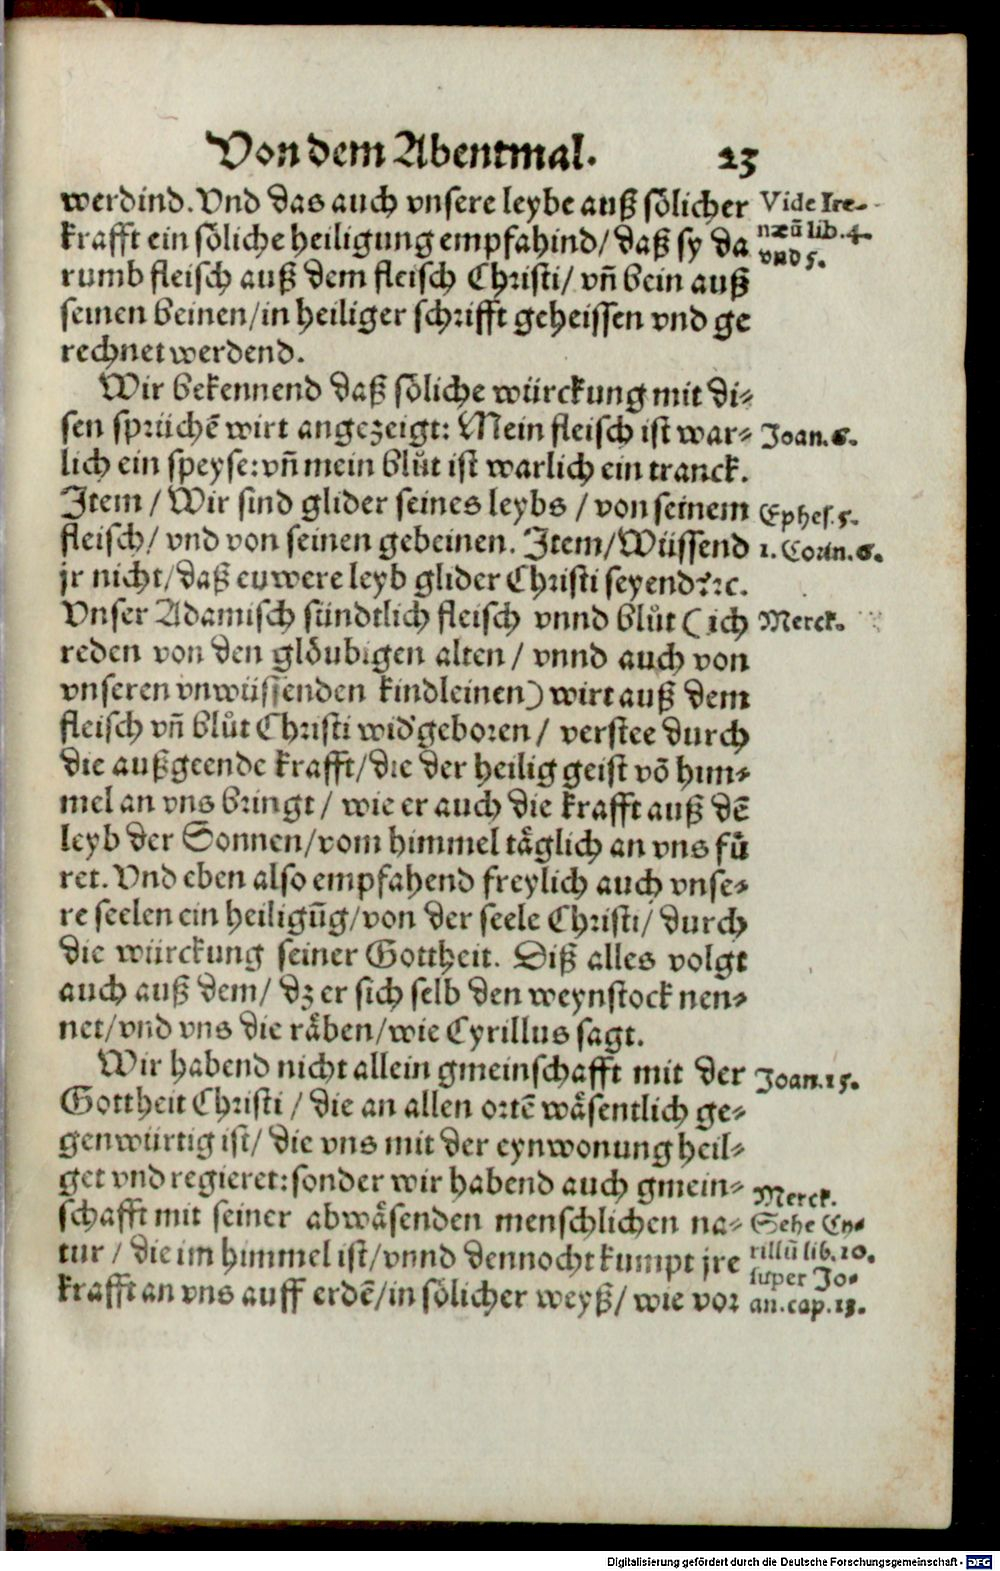 Von dem Abentmal. 23
werdind. Vnd das auch vnsere leybe auß sölicher
krafft ein söliche heiligung empfahind/ daß sy da
rumb fleisch auß dem fleisch Christi/ vñ bein auß
seinen beinen/ in heiliger schrifft geheissen vnd ge
rechnet werdend.
Vide Ire-
næũ lib. 4.
vnd 5.
Wir bekennend daß söliche würckung mit di-
sen sprüchẽ wirt angezeigt: Mein fleisch ist war-
lich ein speyse: vñ mein blůt ist warlich ein tranck.
Item / Wir sind glider seines leybs / von seinem
fleisch/ vnd von seinen gebeinen. Item/ Wüssend
jr nicht/ daß euwere leyb glider Christi seyend? ꝛc.
Vnser Adamisch sündtlich fleisch vnnd blůt ( ich
reden von den glöubigen alten / vnnd auch von
vnseren vnwüssenden kindleinen) wirt auß dem
fleisch vñ blůt Christi wid'geboren / verstee durch
die außgeende krafft/ die der heilig geist võ him-
mel an vns bringt / wie er auch die krafft auß dẽ
leyb der Sonnen/ vom himmel täglich an vns fü
ret. Vnd eben also empfahend freylich auch vnse-
re seelen ein heiligũg/ von der seele Christi/ durch
die würckung seiner Gottheit. Diß alles volgt
auch auß dem/ dz er sich selb den weynstock nen-
net/ vnd vns die räben/ wie Cyrillus sagt.
Joan. 6.
Ephes. 5.
1. Corin. 6.
Merck.
Wir habend nicht allein gmeinschafft mit der
Gottheit Christi / die an allen ortẽ wäsentlich ge-
genwürtig ist/ die vns mit der eynwonung heil-
get vnd regieret: sonder wir habend auch gmein-
schafft mit seiner abwäsenden menschlichen na-
tur / die im himmel ist/ vnnd dennocht kumpt jre
krafft an vns auff erdẽ/ in sölicher weyß/ wie vor
Joan. 15.
Merck.
Sehe Cy-
rillũ lib. 10.
super Jo-
an. cap. 13.
Digitalisierung gefördert durch die Deutsche Forschungsgemeinschaft - DFG